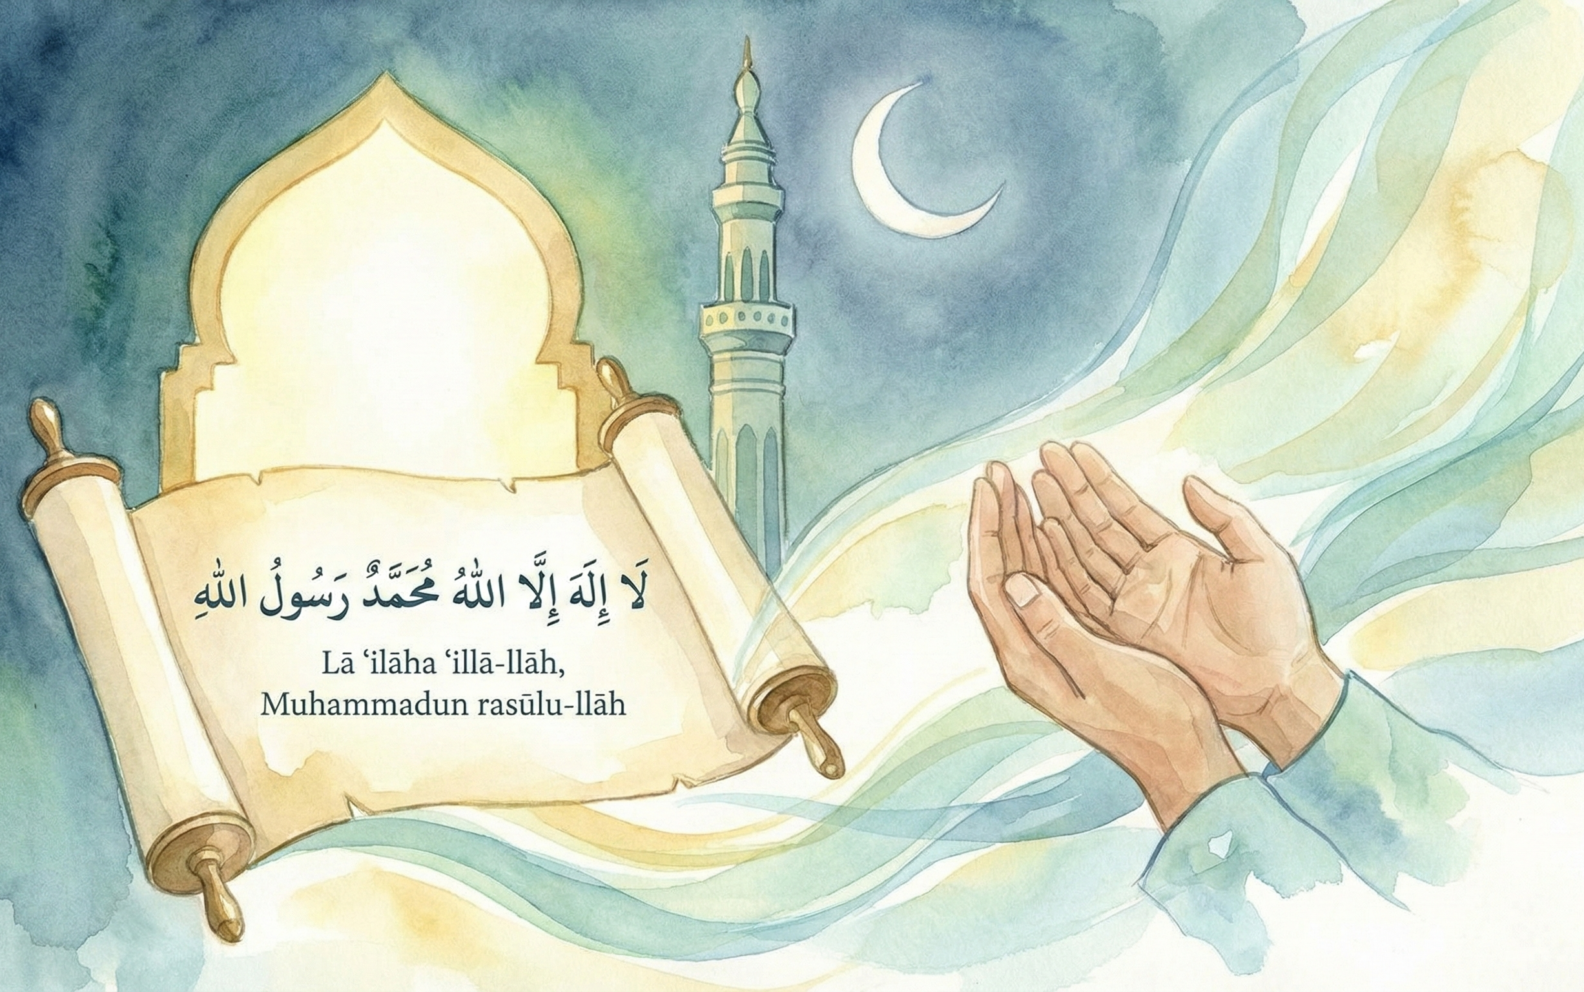 لَا إِلَهَ إِلَّا اللهُ مُحَمَّدٌ رَسُولُ اللهِ
Lā ‘ilāha ‘illā-llāh,
Muhammadun rasūlu-llāh